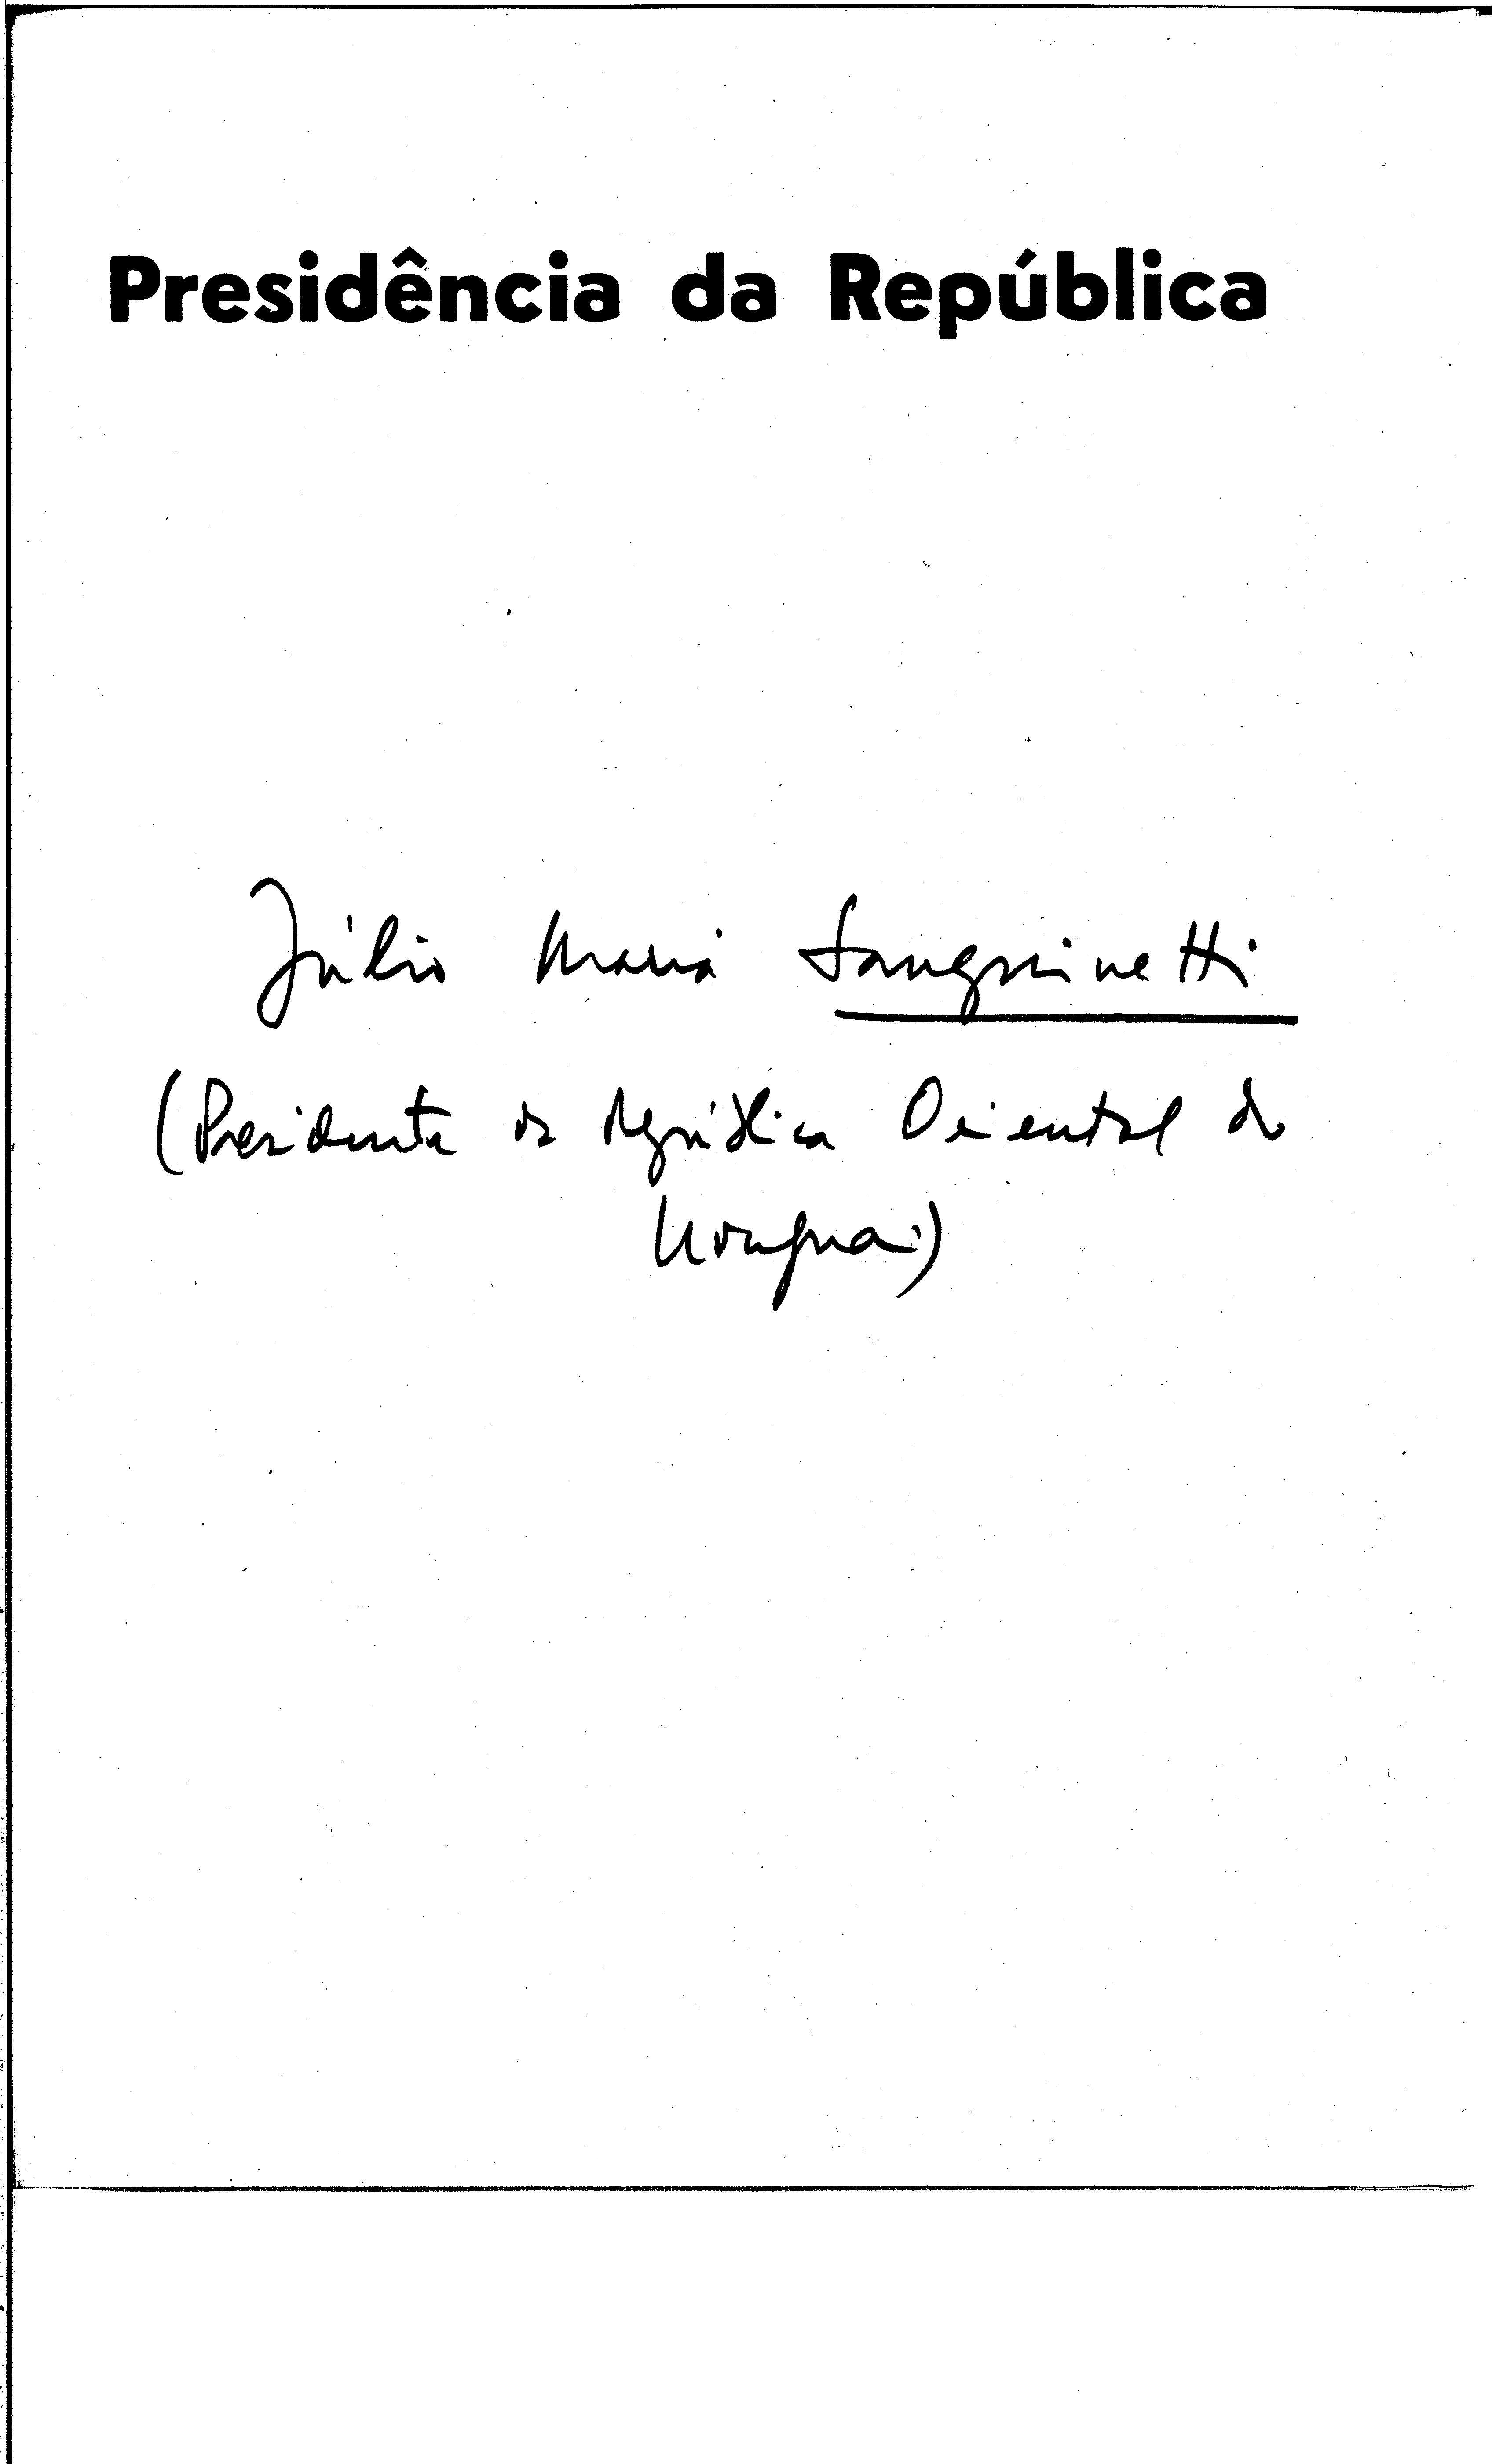 Presidência da República
Júlio Maria Sanguinetti
(Presidente da República Oriental do
Uruguai)